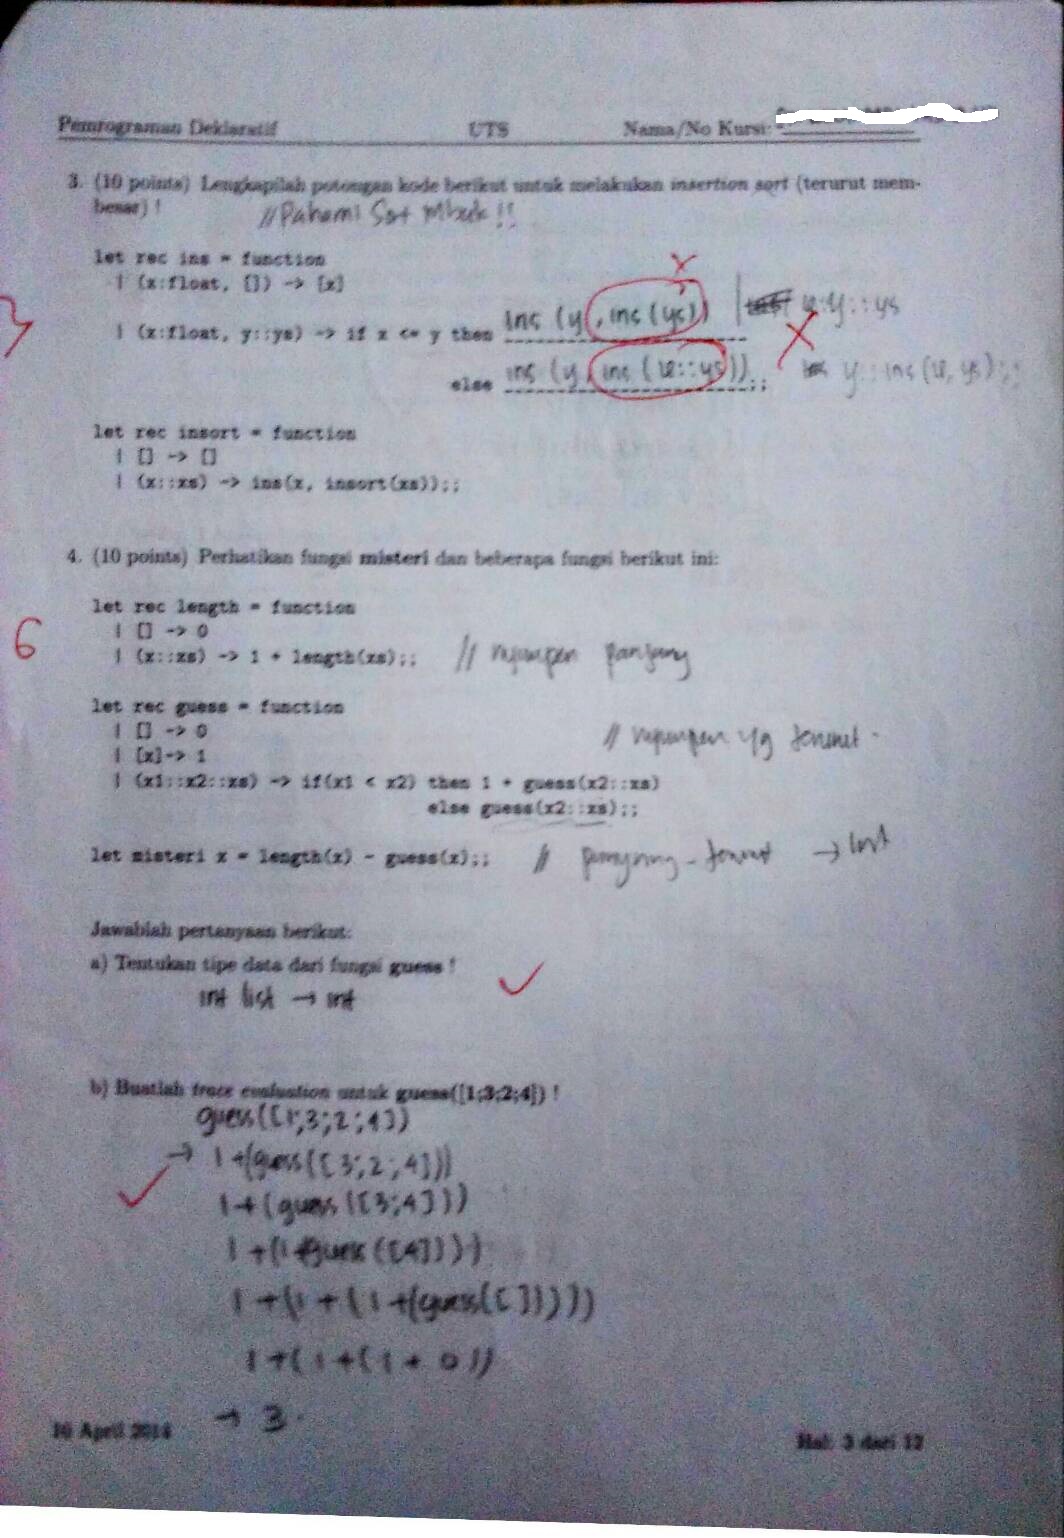 Pemrograman Deklaratif UTS Nama/No Kursi:
3. (10 points) Lengkapilah potongan kode berikut untuk melakukan insertion sort (terurut mem-
besar) ! //Pahami Sort Mbek !!
let rec ins = function
| (x:float, []) -> [x] x
7 | (x:float, y::ys) -> if x <= y then ins (y, ins (ys)) | x::y::ys
else ins (y, ins (x::ys));; X y::ins(x, ys);;
let rec insort = function
| [] -> []
| (x::xs) -> ins(x, insort(xs));;
4. (10 points) Perhatikan fungsi misteri dan beberapa fungsi berikut ini:
let rec length = function
6 | [] -> 0
| (x::xs) -> 1 + length(xs);; // panjang
let rec guess = function
| [] -> 0
| [x]-> 1 // yg terurut.
| (x1::x2::xs) -> if(x1 < x2) then 1 + guess(x2::xs)
else guess(x2::xs);;
let misteri x = length(x) - guess(x);; // panjang - terurut ->
Jawablah pertanyaan berikut:
a) Tentukan tipe data dari fungsi guess !
int list → int
b) Buatlah trace evaluation untuk guess([1;3;2;4]) !
guess([1;3;2;4])
→ 1+(guess([3;2;4]))
1+(guess([3;4]))
1+(1+guess([4])))
1+(1+(1+(guess([]))))
1+(1+(1+0))
→ 3.
16 April 2014 Hal: 3 dari 12